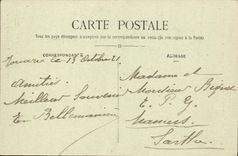 CARTE POSTALE
Tous les pays étrangers n'acceptent pas la correspondance au recto (Se renseigner à la Poste)
CORRESPONDANCE
ADRESSE
le 18 Octobre
Amitié
Meilleur Souvenir
En Bellemanière
Madame et
Monsieur
E. P. G.
Mamers
Sarthe